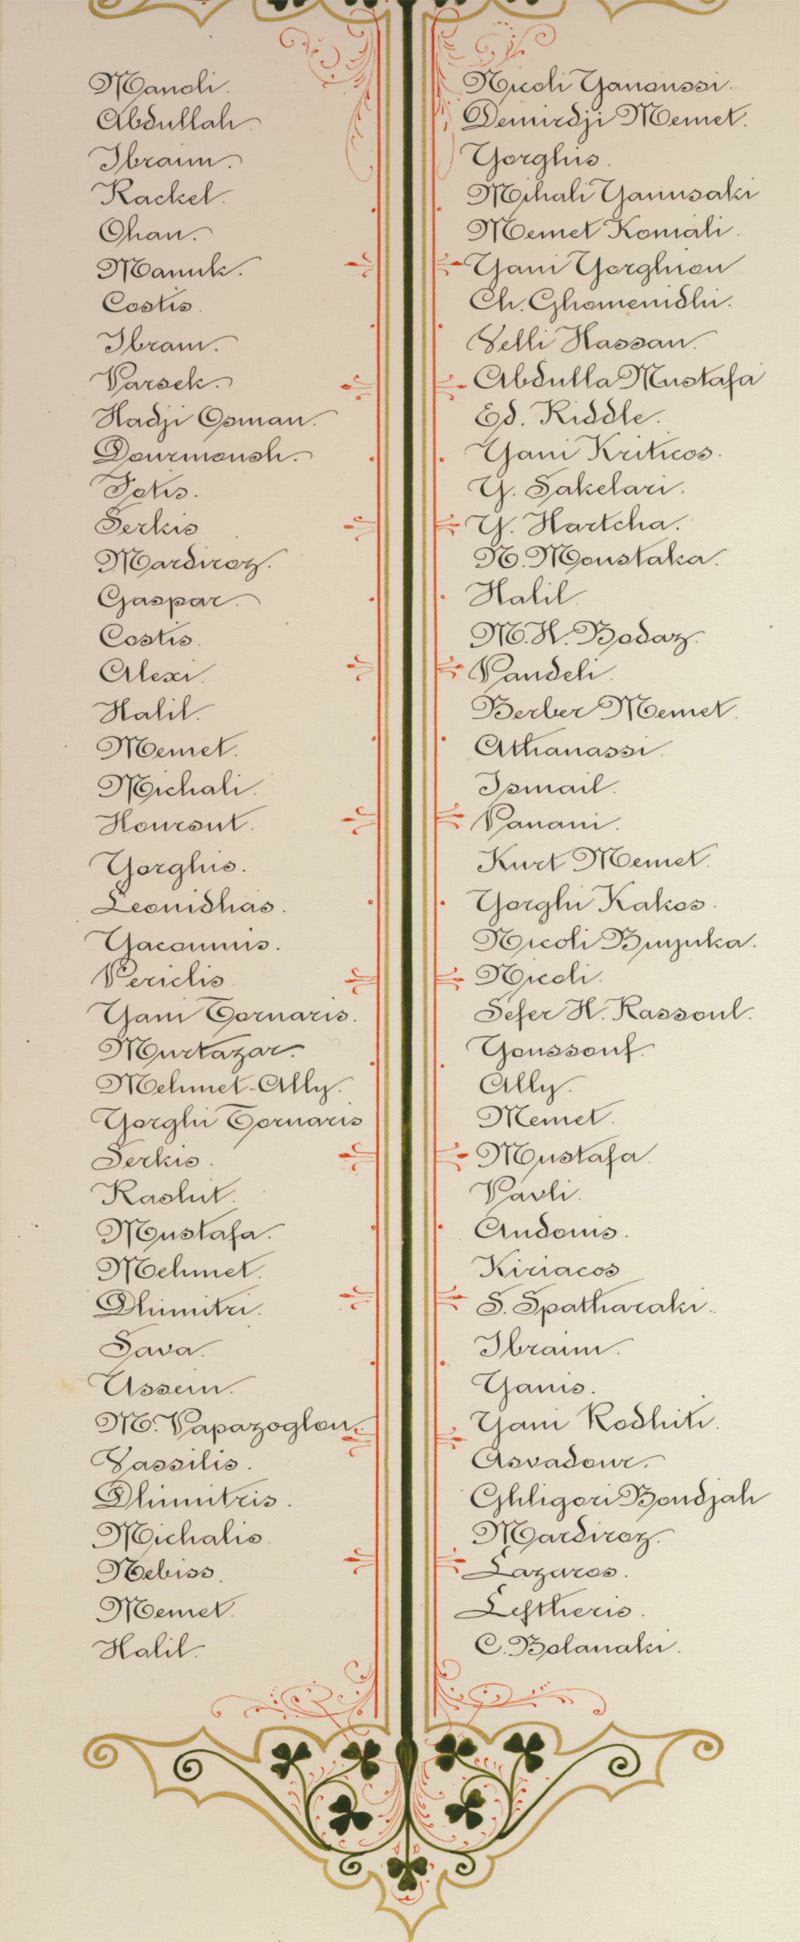 Manoli.
Abdullah.
Ibraim.
Rackel.
Ohan.
Manuk.
Costis.
Ibram.
Varsek.
Hadji Osman.
Dourmoush.
Fotis.
Serkis
Mardiroz.
Gaspar.
Costis.
Alexi.
Halil.
Memet.
Michali.
Hoursut.
Yorghis.
Leonidhas.
Yacoumis.
Periclis.
Yani Tornaris.
Murtazar.
Mehmet-Ally.
Yorghi Tornaris
Serkis.
Rashit.
Mustafa.
Mehmet.
Dhimitri.
Sava.
Ussein.
M. Papazoglou.
Vassilis.
Dhimitris.
Michalis.
Nebiss.
Memet.
Halil.
Nicoli Yanoussi.
Demirdji Memet.
Yorghis.
Mihali Yannsaki
Memet Komali.
Yani Yorghiou
Ch. Ghomenidhi.
Velli Hassan.
Abdulla Mustafa
Ed. Riddle.
Yani Kriticos.
Y. Sakelari.
Y. Hartcha.
N. Moustaka.
Halil.
M. H. Bodaz.
Pandeli.
Berber Memet.
Athanassi.
Ismail.
Panani.
Kurt Memet.
Yorghi Kakos.
Nicoli Buyuka.
Nicoli.
Sefer H. Rassoul.
Youssouf.
Ally.
Memet.
Mustafa.
Pavli.
Andonis.
Kiriacos
S. Spatharaki.
Ibraim.
Yanis.
Yani Rodhiti.
Asvadour.
Ghligori Boudjah
Mardiroz.
Lazaros.
Leftheris.
C. Bolanaki.